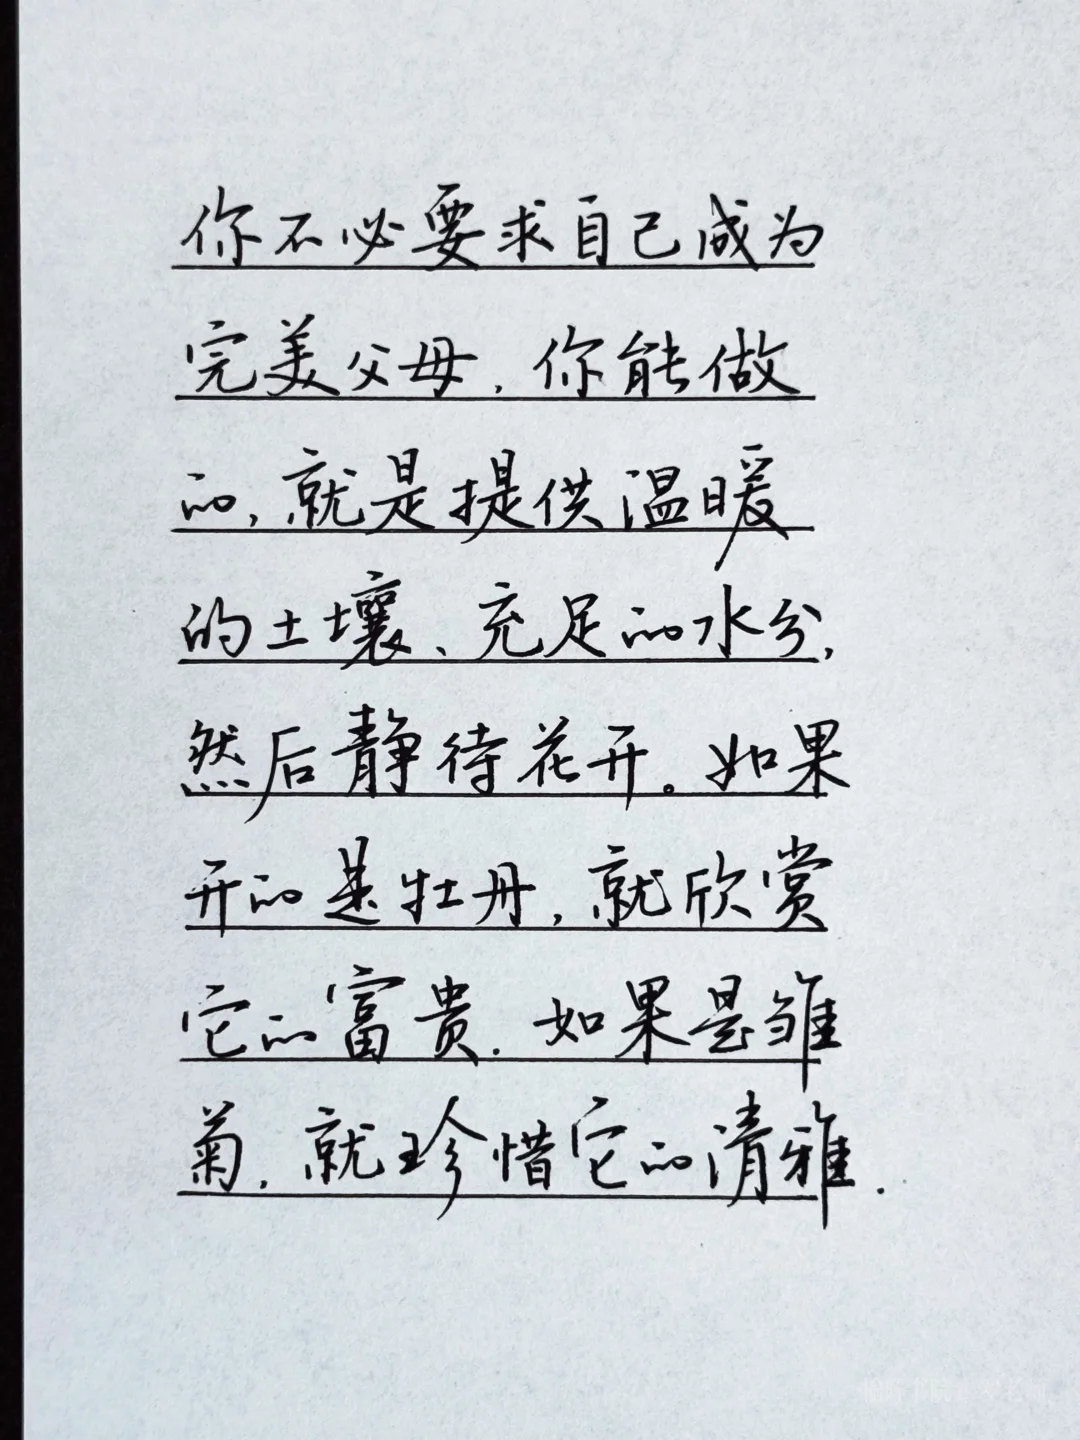 你不必要求自己成为
完美父母,你能做
的,就是提供温暖
的土壤、充足的水分,
然后静待花开。如果
开的是牡丹,就欣赏
它的富贵.如果是雏
菊,就珍惜它的清雅.